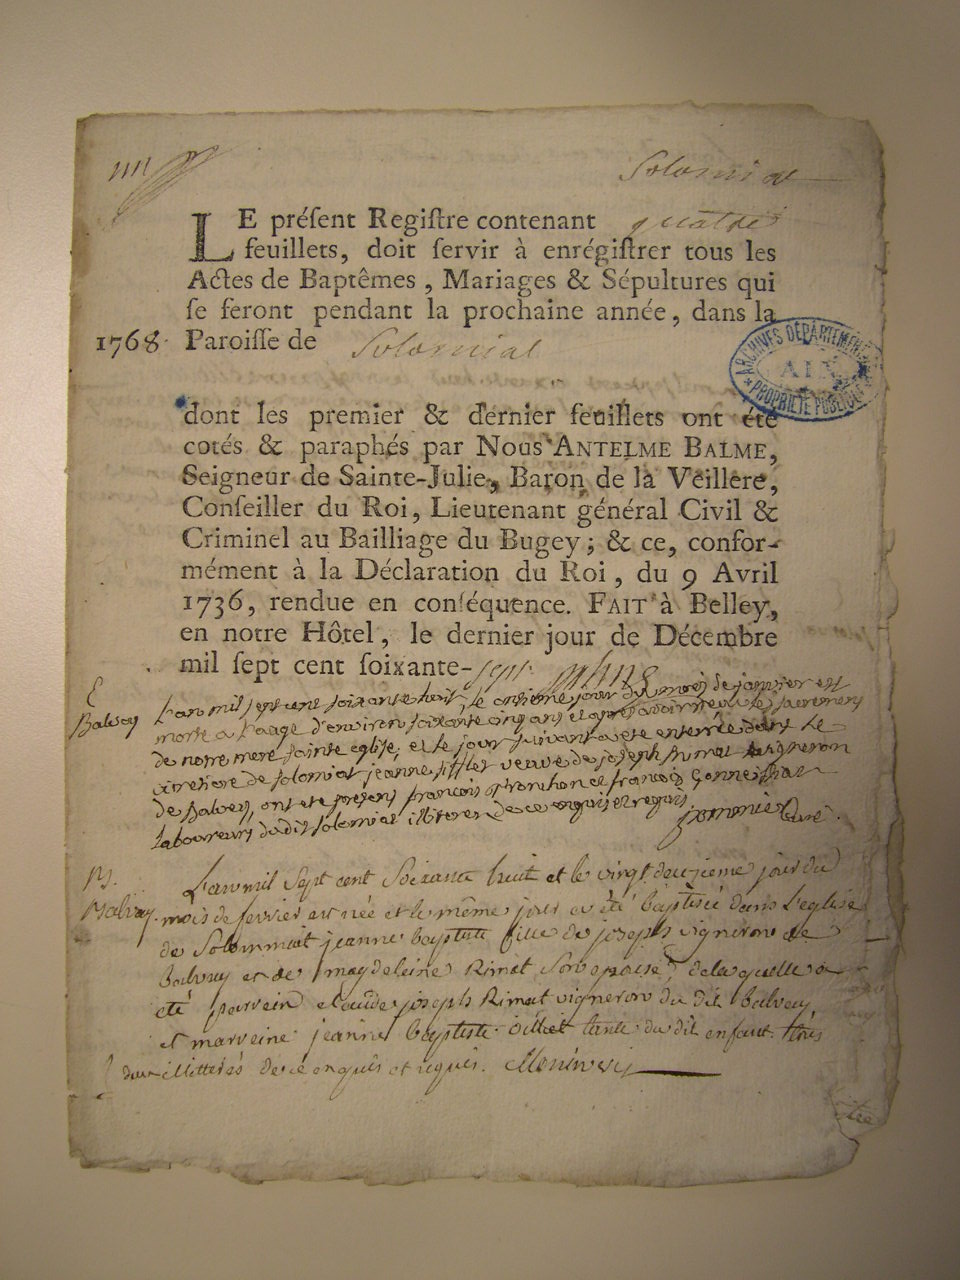 Solomiat
LE préſent Regiſtre contenant quatre
feuillets, doit ſervir à enrégiſtrer tous les
Actes de Baptêmes, Mariages & Sépultures qui
ſe feront pendant la prochaine année, dans la
1768. Paroiſſe de Solomiat
ARCHIVES DÉPARTEMEN
AIN
PROPRIÉTÉ PUBLIQUE
dont les premier & dernier feuillets ont été
cotés & paraphés par NOUS ANTELME BALME,
Seigneur de Sainte-Julie, Baron de la Veillere,
Conſeiller du Roi, Lieutenant général Civil &
Criminel au Bailliage du Bugey; & ce, confor-
mément à la Déclaration du Roi, du 9 Avril
1736, rendue en conſéquence. FAIT à Belley,
en notre Hôtel, le dernier jour de Décembre
mil ſept cent ſoixante-sept
E
Balvay
L'an mil sept cent soixante huit, le onzieme jour du mois de janvier est
morte a l'aage d'environ soixante cinq ans et apres avoir receu les sacremens
de notre mere sainte eglise, et le jour suivant a ete enterrée dans le
cimetiere de solomiat jeanne veuve de joseph rimat vigneron
de Balvay, ont ete presens francois et francois
laboureurs dudit solomiat illiteres de ce enquis et requis. Curé.
B.
Balvay.
L'an mil sept cent soixante huit et le vingt deuzieme jour du
mois de fevrier est née et le même jour a été baptisée dans l'eglise
de Solommiat jeanne baptiste fille de joseph vigneron de
balvay et de magdeleine Rimat son epouse, de laquelle a
été parrein claude joseph Rimat vigneron du dit balvay
et marreine jeanne baptiste tante du dit enfant. tous
deux illitterés de ce enquis et requis.